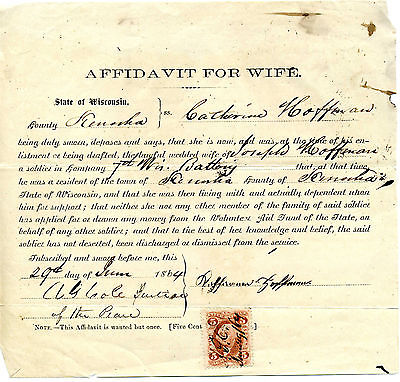 AFFIDAVIT FOR WIFE.
State of Wisconsin, ss. Catherine Hoffman
County Kenosha
being duly sworn, deposes and says, that she is now, and was, at the date of his en-
listment or being drafted, the lawful wedded wife of Joseph Hoffman
a soldier in Company 7th Wis. Battery that, at that time,
he was a resident of the town of Kenosha County of Kenosha
State of Wisconsin, and that she was then living with and actually dependent upon
him for support; that neither she nor any other member of the family of said soldier
has applied for or drawn any money from the Volunteer Aid Fund of the State, on
behalf of any other soldier; and that to the best of her knowledge and belief, the said
soldier has not deserted, been discharged or dismissed from the service.
Subscribed and sworn before me, this
29th day of June 1864
Hoffman
Cole Justice
of the Peace
NOTE.—This Affidavit is wanted but once. [Five Cent